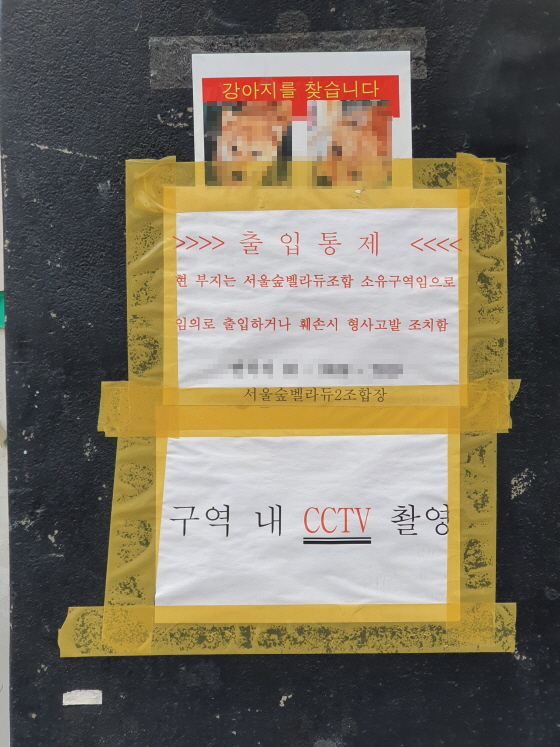 강아지를 찾습니다
>>>> 출 입 통 제 <<<<
현 부지는 서울숲벨라듀조합 소유구역임으로
임의로 출입하거나 훼손시 형사고발 조치함
서울숲벨라듀2조합장
구역 내 CCTV 촬영